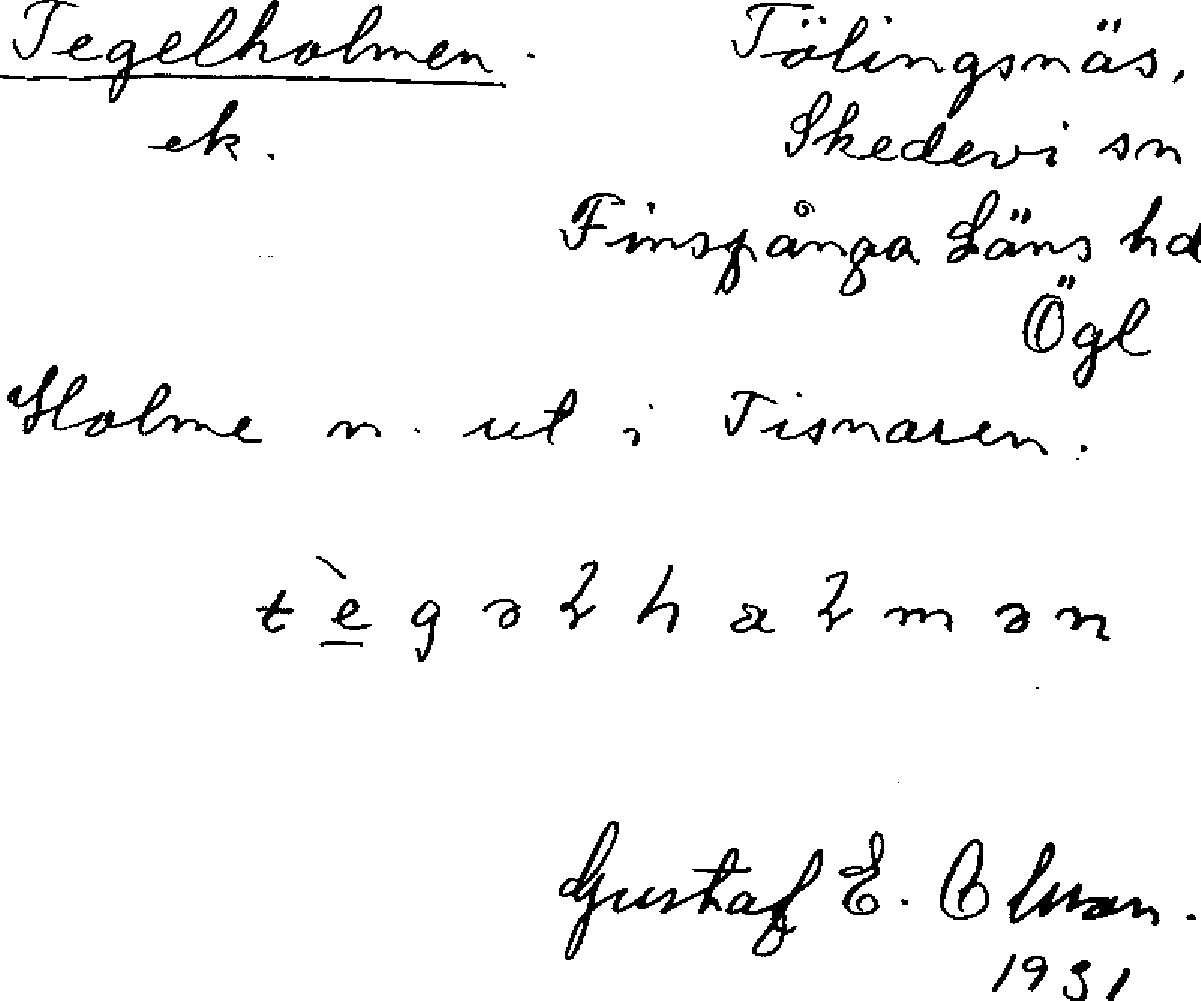 Tegelholmen.
ek.
Tölingsnäs,
Skedevi sn
Finspånga Läns hd
Ögl
Holme n. ut i Tisnaren.
tègəɬhaɬmən
Gustaf E.
1931